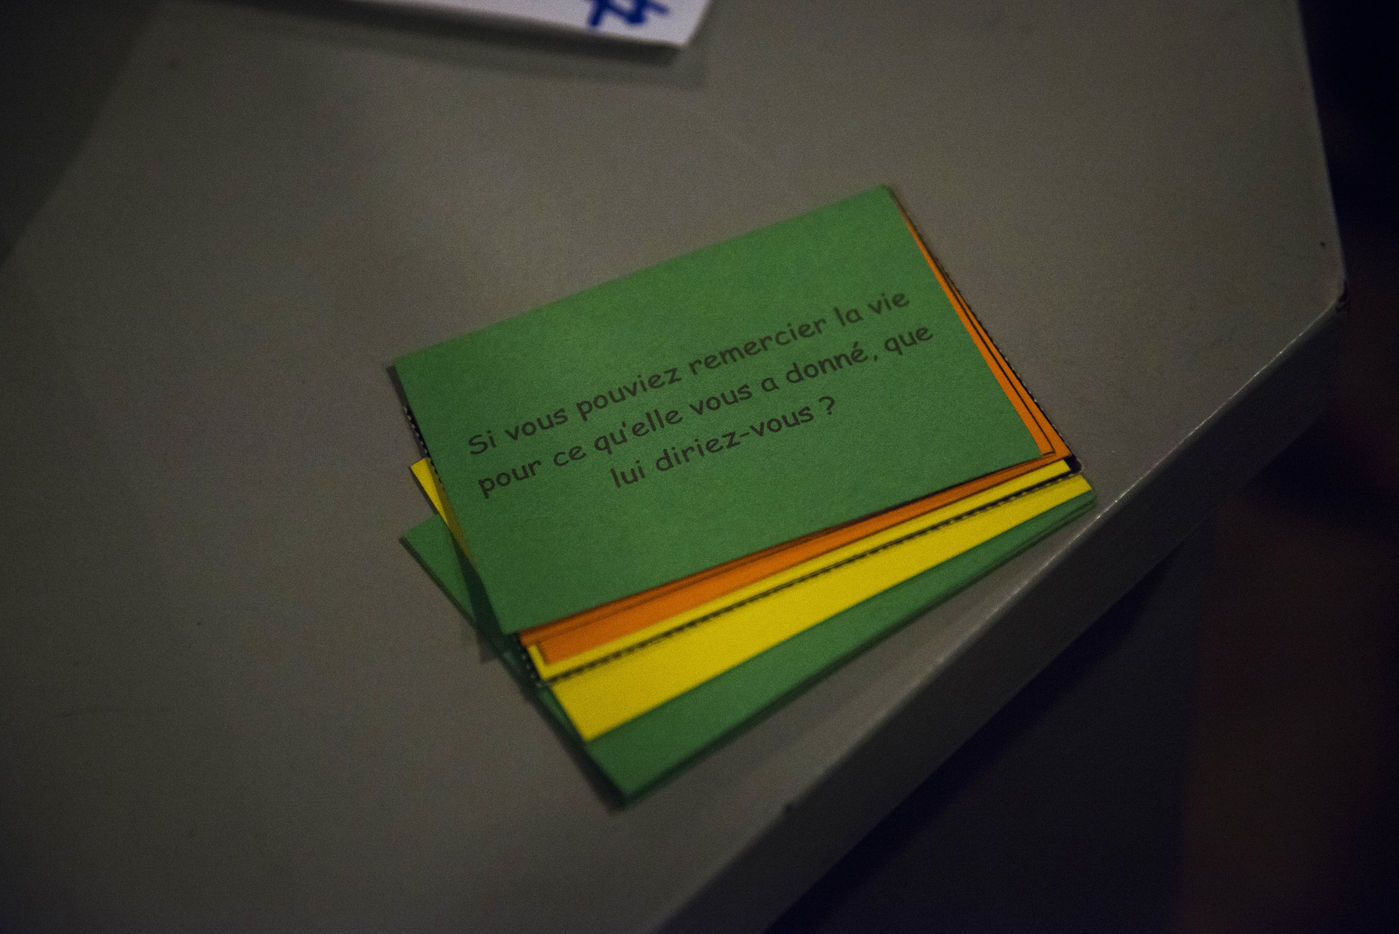 Si vous pouviez remercier la vie
pour ce qu'elle vous a donné, que
lui diriez-vous ?